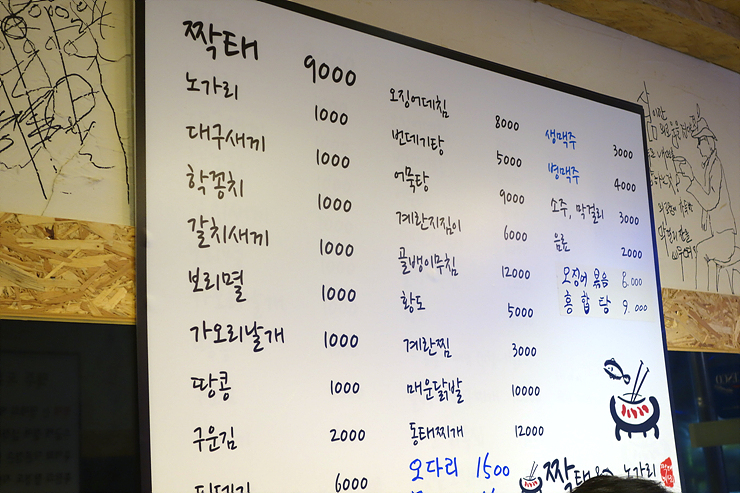 짝태 9000
노가리 1000
대구새끼 1000
학꽁치 1000
갈치새끼 1000
보리멸 1000
가오리날개 1000
땅콩 1000
구운김 2000
6000
오징어데침 8000
번데기탕 5000
어묵탕 9000
계란지짐이 6000
골뱅이무침 12000
황도 5000
계란찜 3000
매운닭발 10000
동태찌개 12000
오다리 1500
생맥주 3000
병맥주 4000
소주, 막걸리 3000
음료 2000
오징어 볶음 8.000
홍합탕 9.000
짝태 노가리